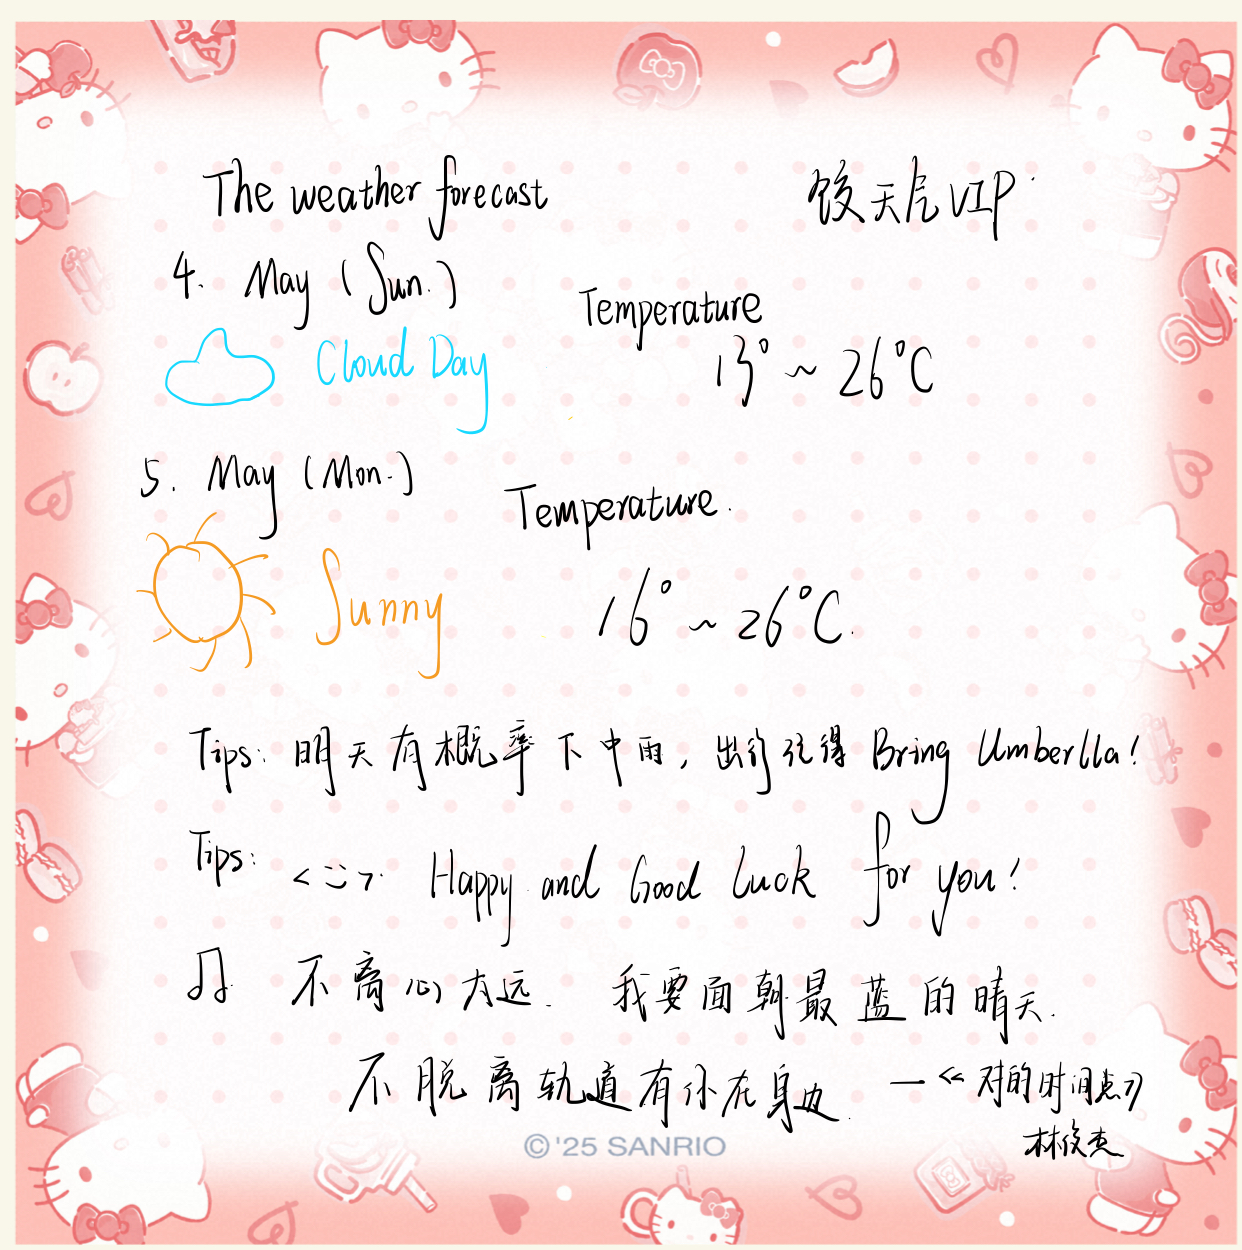 The weather forecast
饺天气VIP
4. May (Sun.)
Temperature
Cloud Day
13° ~ 26°C
5. May (Mon.)
Temperature.
Sunny
16° ~ 26°C.
Tips: 明天有概率下中雨，出行记得 Bring Umberlla!
Tips: Happy and Good Luck for you!
不离心太远. 我要面朝最蓝的晴天.
不脱离轨道有你在身边. —《对的时间点》
林俊杰
© '25 SANRIO